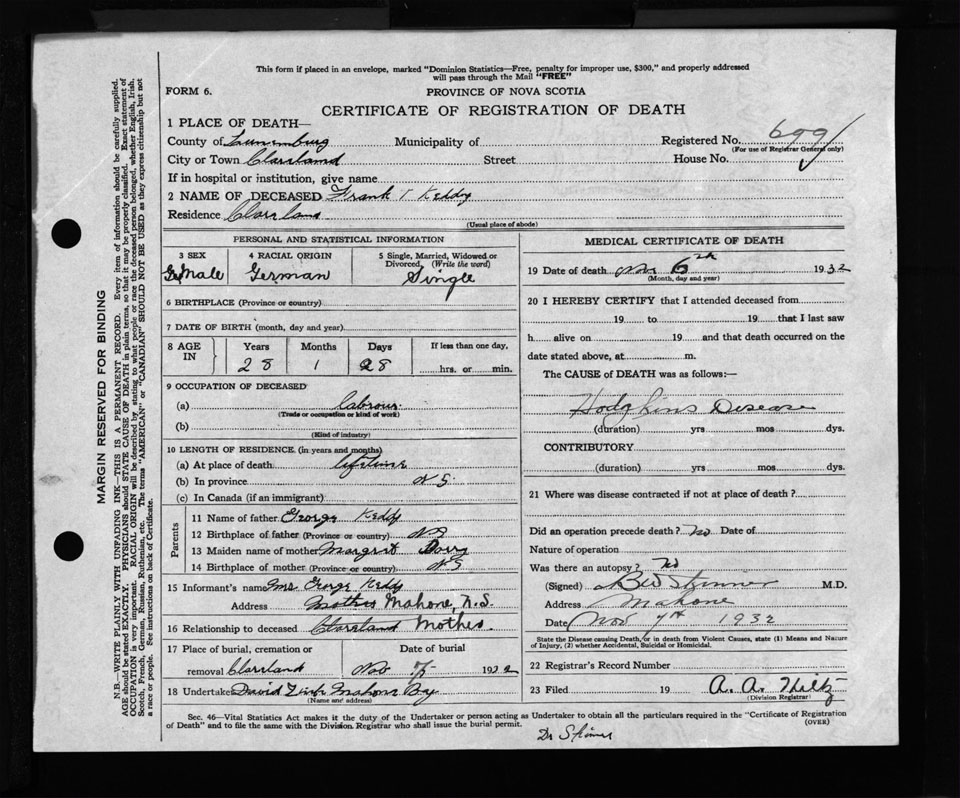 This form if placed in an envelope, marked "Dominion Statistics—Free, penalty for improper use, $300," and properly addressed
will pass through the Mail "FREE"
FORM 6.
PROVINCE OF NOVA SCOTIA
CERTIFICATE OF REGISTRATION OF DEATH
1 PLACE OF DEATH—
County of Lunenburg Municipality of Registered No. 699
(For use of Registrar General only)
City or Town Clarrland Street House No.
If in hospital or institution, give name
2 NAME OF DECEASED Frank T Keddy
Residence Clarrland
(Usual place of abode)
PERSONAL AND STATISTICAL INFORMATION
3 SEX 4 RACIAL ORIGIN 5 Single, Married, Widowed or
Divorced, (Write the word)
Male German Single
6 BIRTHPLACE (Province or country)
7 DATE OF BIRTH (month, day and year)
8 AGE IN Years Months Days If less than one day,
28 1 28 hrs. or min.
9 OCCUPATION OF DECEASED
(a) labour
(Trade or occupation or kind of work)
(b)
(Kind of industry)
10 LENGTH OF RESIDENCE (in years and months)
(a) At place of death lifetime
(b) In province N S
(c) In Canada (if an immigrant)
Parents
11 Name of father George Keddy
12 Birthplace of father (Province or country) NS
13 Maiden name of mother Margrit
14 Birthplace of mother (Province or country) NS
15 Informant's name Mrs George Keddy
Address Mahone, N.S.
16 Relationship to deceased Clarrland Mother
17 Place of burial, cremation or Date of burial
removal Clarrland Nov 7 1932
18 Undertaker David Zink Mahone Bay
(Name and address)
MEDICAL CERTIFICATE OF DEATH
19 Date of death Nov 6th 1932
(Month, day and year)
20 I HEREBY CERTIFY that I attended deceased from
19 to 19 that I last saw
h alive on 19 and that death occurred on the
date stated above, at m.
The CAUSE of DEATH was as follows:—
Hodgkins Disease
(duration) yrs mos dys.
CONTRIBUTORY
(duration) yrs mos dys.
21 Where was disease contracted if not at place of death?
Did an operation precede death? No Date of
Nature of operation
Was there an autopsy? No
(Signed) Skinner M.D.
Address Mahone
Date Nov 7th 1932
State the Disease causing Death, or in death from Violent Causes, state (1) Means and Nature
of Injury, (2) whether Accidental, Suicidal or Homicidal.
22 Registrar's Record Number
23 Filed 19 A. A. Hiltz
(Division Registrar)
Sec. 46—Vital Statistics Act makes it the duty of the Undertaker or person acting as Undertaker to obtain all the particulars required in the "Certificate of Registration
of Death" and to file the same with the Division Registrar who shall issue the burial permit.
(OVER)
Dr Skinner
MARGIN RESERVED FOR BINDING
N.B.—WRITE PLAINLY WITH UNFADING INK—THIS IS A PERMANENT RECORD. Every item of information should be carefully supplied.
AGE should be stated EXACTLY. PHYSICIANS should STATE CAUSE OF DEATH in plain terms, so that it may be properly classified. Exact statement of
OCCUPATION is very important. RACIAL ORIGIN will be described by stating to what people or race the deceased person belonged, whether English, Irish,
Scotch, French, German, Russian, Ruthenian, etc. The terms "AMERICAN" or "CANADIAN" SHOULD NOT BE USED as they express citizenship but not
a race or people. See instructions on back of Certificate.